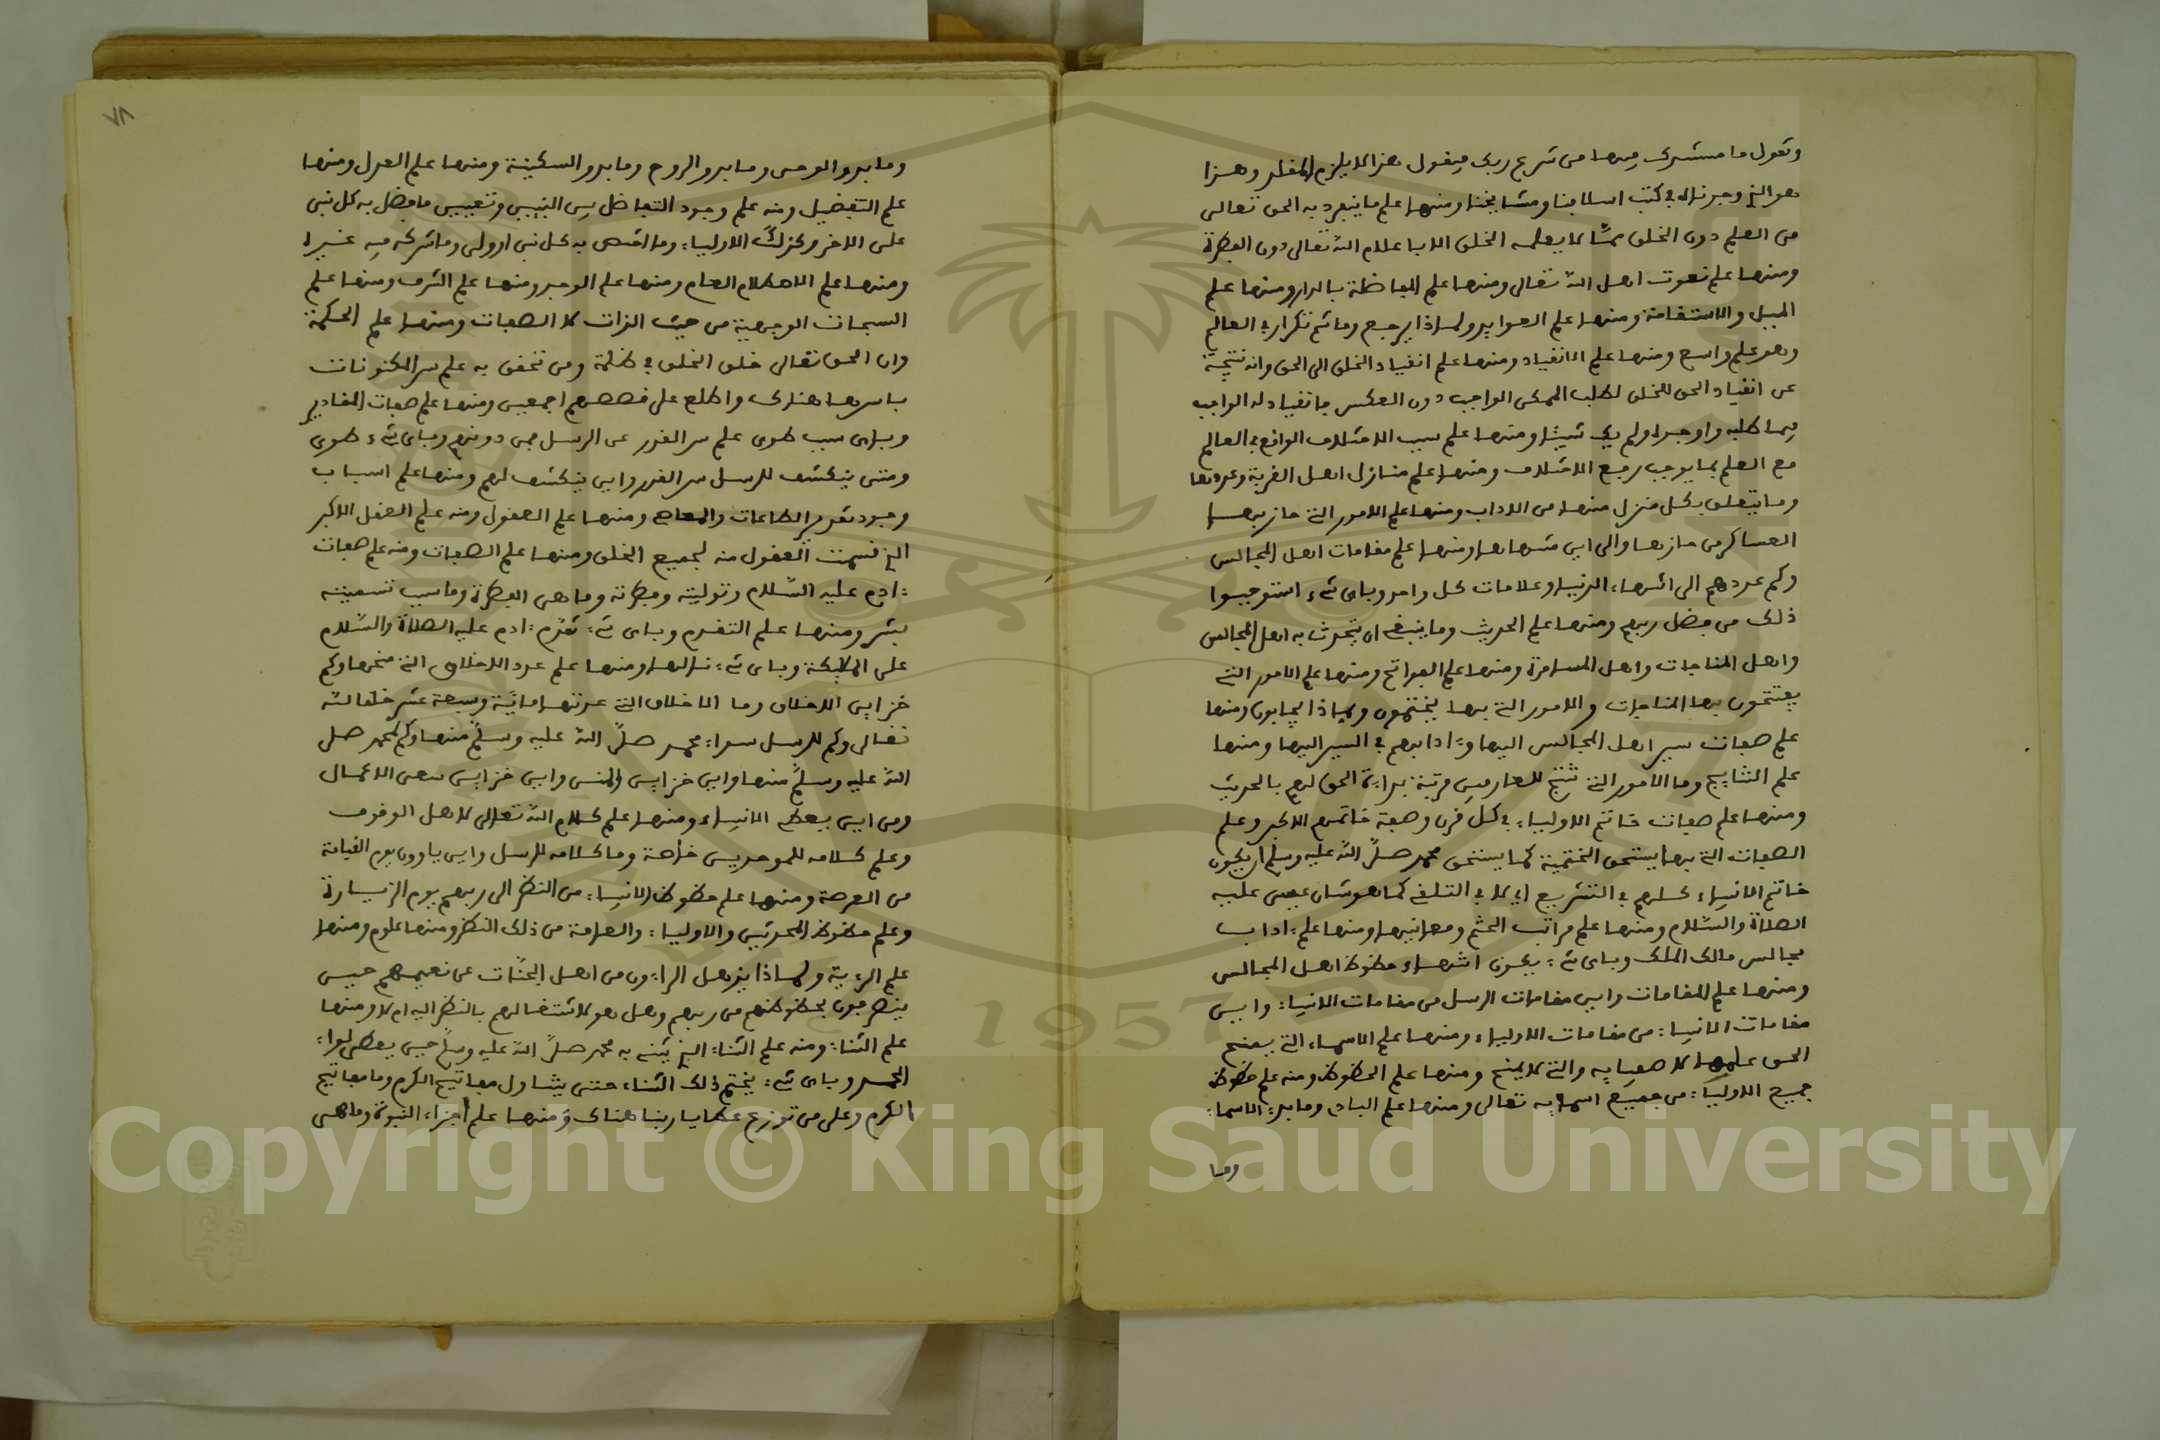 وتقول ما مستندك فيها من شرع ربك فيقول هذا لا يلزم المقلد وهذا
هو الذي وجدناه في كتب اسلافنا ومشايخنا ومنها علم ما ينفرد به الحق تعالى
من العلم دون الخلق ممّا لا يعلمه الخلق الا باعلام الله تعالى دون الفطرة
ومنها علم نعوت اهل الله تعالى ومنها علم المفاضلة بالدار ومنها علم
الميل والاستقامة ومنها علم العوايد ولماذا يرجع وما ثم تكرار في العالم
وهو علم واسع ومنها علم الانقياد ومنها علم انقياد الخلق الى الحق وانه نتيجة
عن انقياد الحق للخلق لطلب الممكن الواجب دون العكس فانقياد له الواجب
فيما طلبه واوجده ولم يك شيئا ومنها علم سبب الاختلاف الواقع في العالم
مع العلم بما يوجب رفع الاختلاف ومنها علم منازل اهل القربة وعددها
وما يتعلق بكل منزل منها من الاداب ومنها علم الامور التي حاز بها
العساكر من حازها والى اين منتهاها ومنها علم مقامات اهل المجالس
وكم عددهم الى انتهاء الدنيا وعلامات كل واحد وباي شيء استوجبوا
ذلك من فضل ربهم ومنها علم الحديث وما ينبغي ان يتحدث به اهل المجالس
واهل المناجات واهل المسامرة ومنها علم الفواتح ومنها علم الامور التي
يفتتحون بها المناجات والامور التي بها يختتمون وبماذا يجابون ومنها
علم صفات سير اهل المجالس اليها وآدابهم في السير اليها ومنها
علم النتايج وما الامور التي تنتج للعارفين مرتبة بداية الحق لهم بالحديث
ومنها علم صفات خاتم الاولياء في كل قرن وصفة خاتمهم الاكبر وعلم
الصفات التي بها يستحق الختمية كما يستحق محمد صلى الله عليه وسلم ان يكون
خاتم الانبياء كلهم في التشريع اي لا في التلقي كما هو شان عيسى عليه
الصلاة والسلام ومنها علم مراتب الختم ومعانيها ومنها علم اداب
مجالس مالك الملك وباي شيء يكون انتهاء حظوظ اهل المجالس
ومنها علم المقامات واين مقامات الرسل من مقامات الانبياء واين
مقامات الانبياء من مقامات الاولياء ومنها علم الاسماء التي يمنح
الحق علمها لاصفيايه والتي لا يمنح ومنها علم الحظوظ ومنه علم حظوظ
جميع الاولياء من جميع اسمايه تعالى ومنها علم البادي وما بدء الاسماء
وما
٧٨
وما بدو الوحي وما بدو الروح وما بدو السكينة ومنها علم العدل ومنها
علم التفضيل ومنه علم وجود التفاضل بين النبيين وتعيين ما فضل به كل نبي
على الاخر وكذلك الاولياء وما اختص به كل نبي او ولي وما شركه فيه غيره
ومنها علم الاصطلام العام ومنها علم الوجد ومنها علم الشرف ومنها علم
السبحات الوجهية من حيث الذات لا الصفات ومنها علم الحكمة
وان الحق تعالى خلق الخلق في ظلمة ومن تحقق به علم سر المكنونات
باسرها هنالك واطلع على قصصهم اجمعين ومنها علم صفات المقادير
وباي سبب طوي علم سر القدر عن الرسل فمن دونهم وباي شيء طوي
ومتى ينكشف للرسل سر القدر واين ينكشف لهم ومنها علم اسباب
وجود تقدير الطاعات والمعاصي ومنها علم العقول ومنه علم العقل الاكبر
الذي قسمت العقول منه لجميع الخلق ومنها علم الصفات ومنه علم صفات
آدم عليه السلام وتوليته وفطرته وما هي الفطرة وما سبب تسميته
بشر ومنها علم التقدم وباي شيء تقدم آدم عليه الصلاة والسلام
على الملايكة وباي شيء نالها ومنها علم عدد الاخلاق التي منحها وكم
خزاين الاخلاق وما الاخلاق التي عدتها ماية وسبعة عشر خلقا لله
تعالى وكم للرسل سوا محمد صلى الله عليه وسلم منها وكم لمحمد صلى
الله عليه وسلم منها واين خزاين المنن واين خزاين سعي الاعمال
ومن اين يعطى الانبياء ومنها علم كلام الله تعالى لاهل الوقوف
وعلم كلامه للموحدين خاصة وما كلامه للرسل واين ياوون يوم القيامة
من العرصة ومنها علم حظوظ الانبياء من النظر الى ربهم يوم الزيارة
وعلم حظوظ المحدثين والاولياء والعامة من ذلك النظر ومنها علوم ومنها
علم الرءية ولماذا يذهل الراءون من اهل الجنّات عن نعيمهم حين
ينصرفون بحظوظهم من ربهم وهل هو لاشتغالهم بالنظر اليه ام لا ومنها
علم الثناء ومنه علم الثناء الذي يثني به محمد صلى الله عليه وسلم حين يعطى لواء
الحمد وباي شيء يختم ذلك الثناء حتى يناول مفاتيح الكرم وما مفاتيح
الكرم وعلى من توزع عطايا ربنا هناك ومنها علم اجزاء النبوة وما هي
Copyright © King Saud University
1957